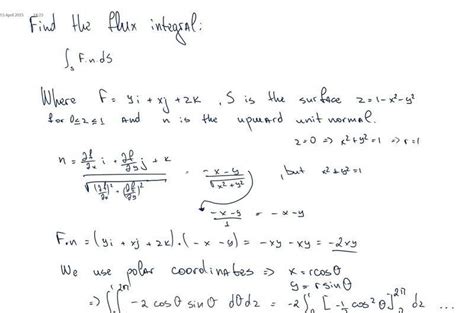 13 April 2015
Find the flux integral:
∫_S F.n dS
Where F = yi + xj + zk , S is the surface z=1-x²-y²
for 0≤z≤1 and n is the upward unit normal.
z=0 ⇒ x²+y²=1 ⇒ r=1
n = (∂f/∂x i + ∂f/∂y j + k) / √((∂f/∂x)² + (∂f/∂y)²) = (-x-y)/√(x²+y²) , but x²+y²=1
(-x-y)/1 = -x-y
F.n = (yi + xj + zk).(-x-y) = -xy-xy = -2xy
We use polar coordinates ⇒ x=rcosθ
y=rsinθ
⇒ ∫∫^2π -2cosθ sinθ dθdz = -2∫ [-½cos²θ]^2π dz ...